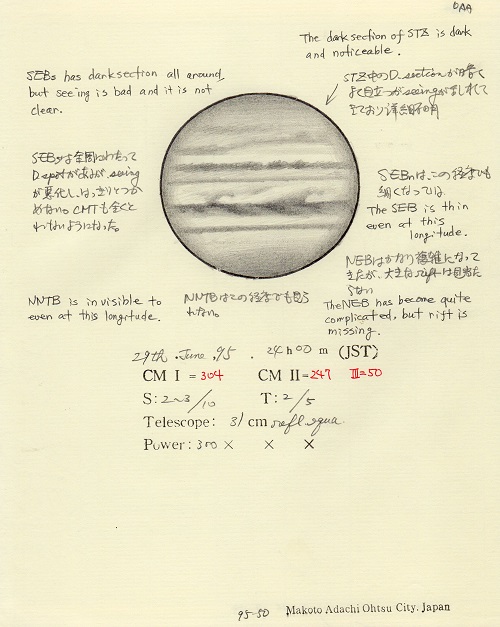 OAA
The dark section of STZ is dark
and noticeable.
STZ中のD.sectionが暗く
よく目立つがseeingがまれて
きており詳細不明
SEBs has dark section all around,
but seeing is bad and it is not
clear.
SEBsは全周にわたって
D spotがあるが、seeing
が悪化し、はっきりとつか
めない。CMTも全くと
れないようになった。
SEBnは、この経度でも
細くなっている
The SEB is thin
even at this
longitude.
NEBはかなり複雑になって
きたが、大きなriftは見当た
らない
The NEB has become quite
complicated, but rift is
missing.
NNTB is invisible to
even at this longitude.
NNTBはこの経度でも見ら
れない。
29th. June. 95 . 24h00m (JST)
CM I = 304 CM II = 247 III = 50
S: 2~3/10 T: 2/5
Telescope: 31 cm refl. equa.
Power: 300 × × ×
95-50 Makoto Adachi Ohtsu City. Japan